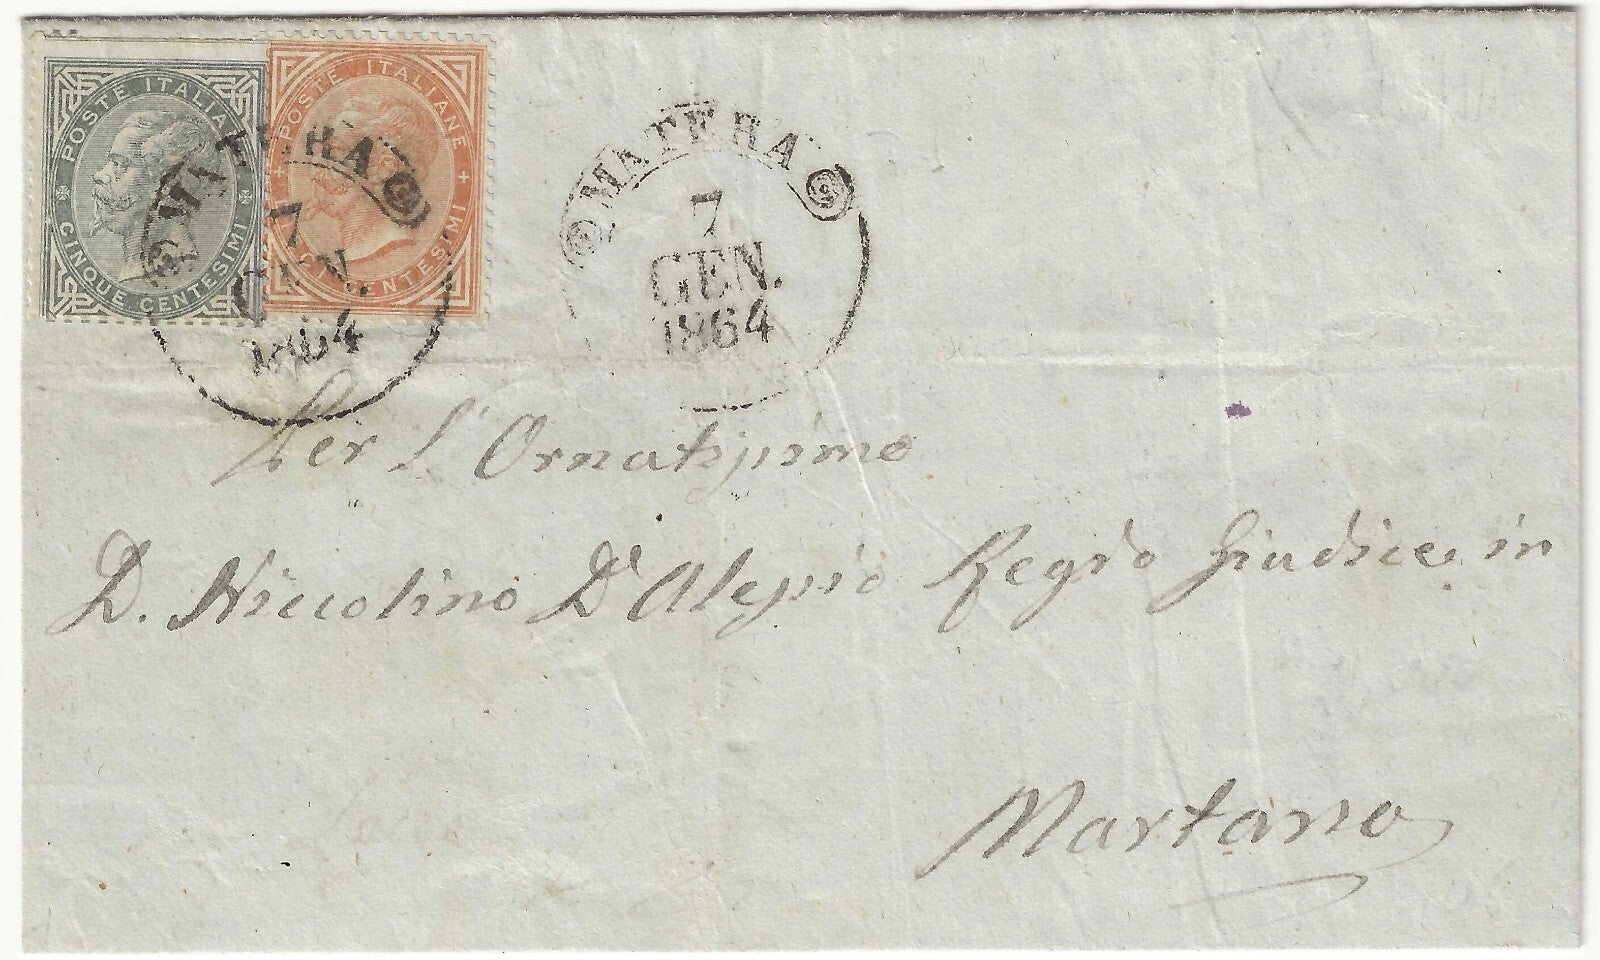 POSTE ITALIANE
CINQUE CENTESIMI
POSTE ITALIANE
CENTESIMI
MATERA
7
GEN.
1864
MATERA
7
GEN.
1864
Per l'Ornatissimo
D. Niccolino D'Alessio Regio Giudice in
Martano